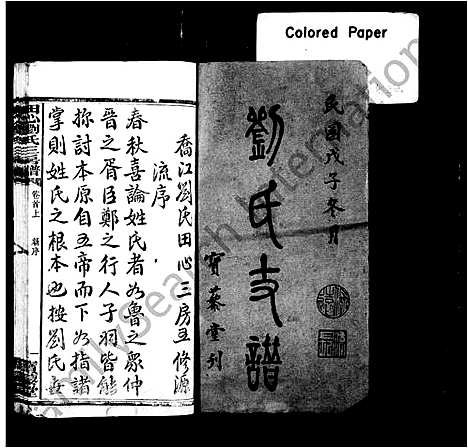 Colored Paper
民國戊子冬月
劉氏支譜
寶蔡堂刋
喬江劉氏田心三房五修源
流序
春秋喜論姓氏者如魯之眾仲
晉之胥臣鄭之行人子羽皆能
推討本原自五帝而下如指諸
掌則姓氏之根本也按劉氏
田心劉氏三房譜
卷首上
源序
FamilySearch International